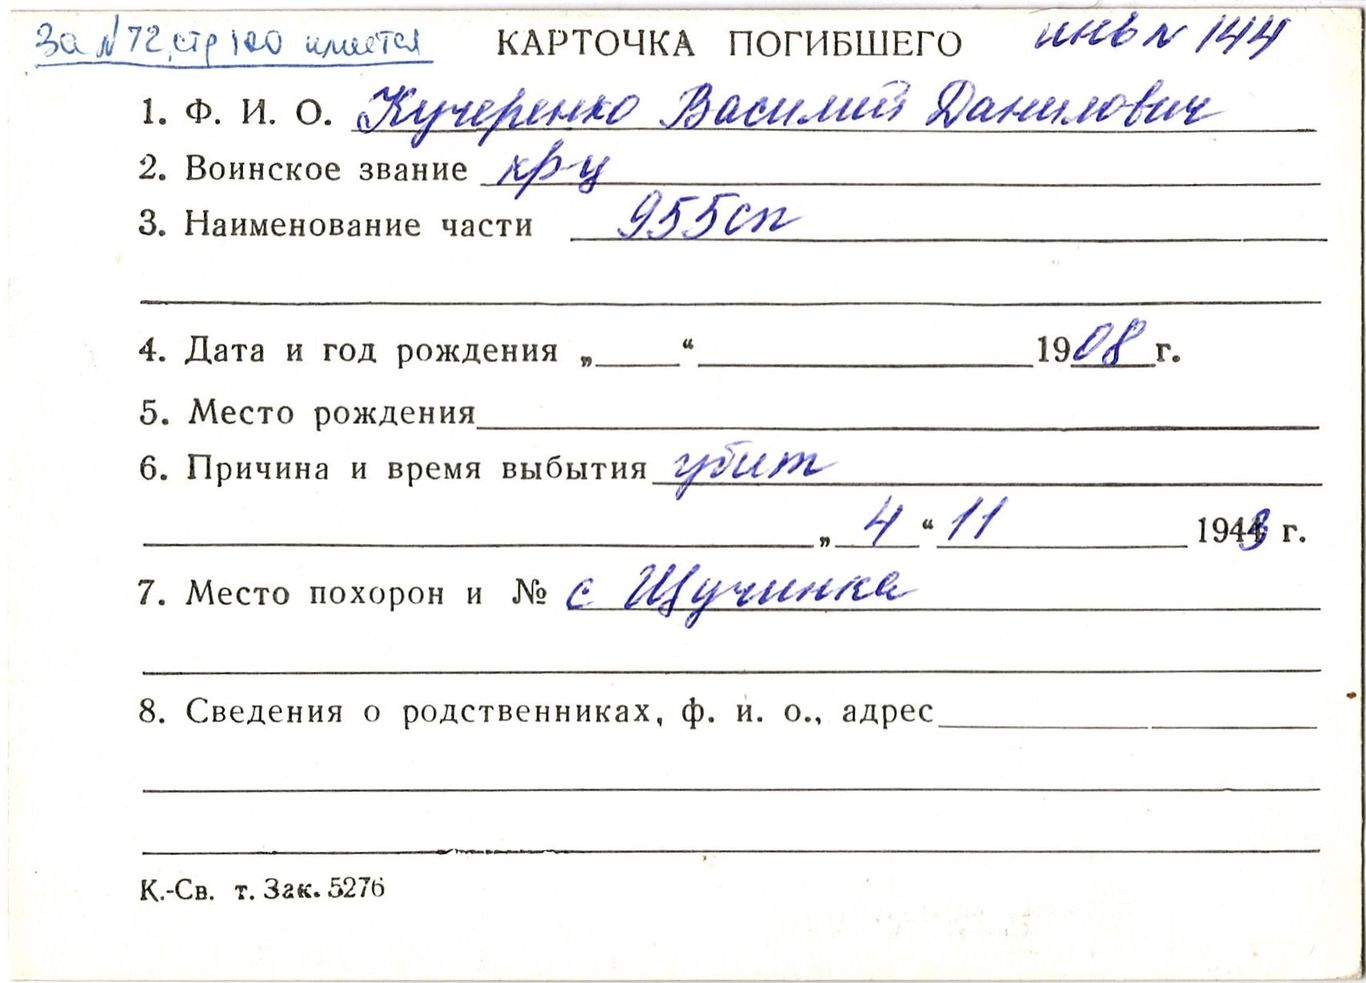 За №72, стр 120 имеется КАРТОЧКА ПОГИБШЕГО инв № 144
1. Ф. И. О. Кучеренко Василий Данилович
2. Воинское звание кр-ц
3. Наименование части 955сп
4. Дата и год рождения „ “ 1908 г.
5. Место рождения
6. Причина и время выбытия убит
„ 4 “ 11 1943 г.
7. Место похорон и № с Щучинка
8. Сведения о родственниках, ф. и. о., адрес
К.-Св. т. Зак. 5276